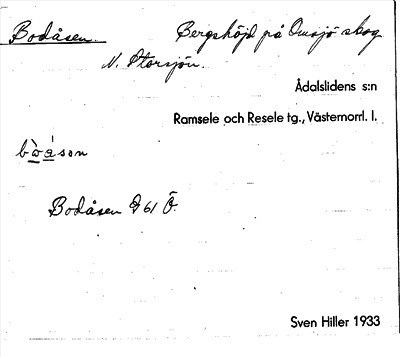 Bodåsen. Bergshöjd på Omsjö skog
N. Storsjön.
Ådalslidens s:n
Ramsele och Resele tg., Västernorrl. l.
Bodåsen 61 Ö.
Sven Hiller 1933